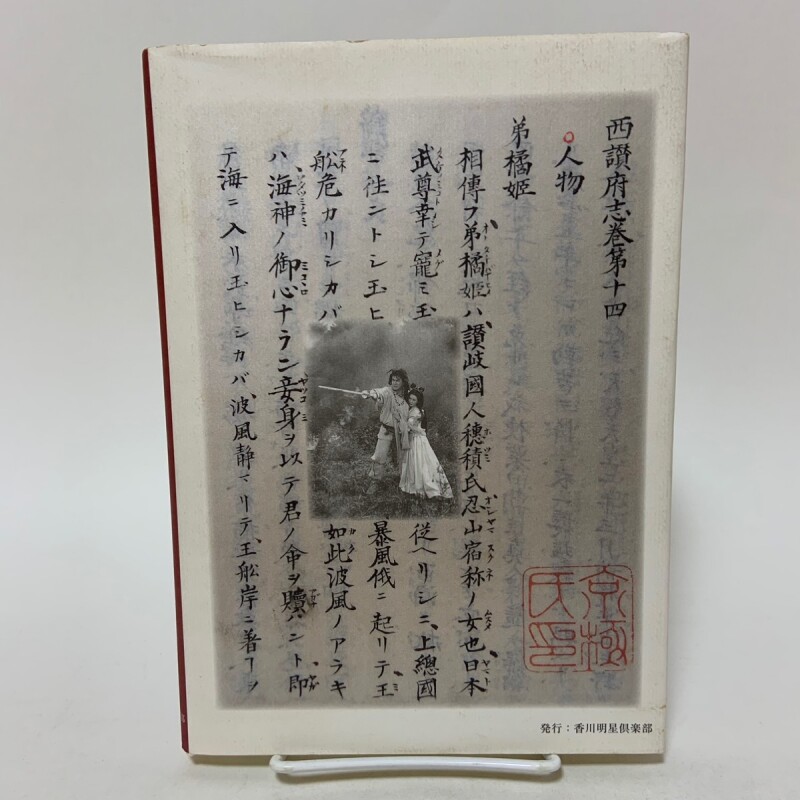 西讃府志巻第十四
人物
弟橘姫
相傳フ弟橘姫ハ、讃岐國人穂積氏忍山宿称ノ女也日本
武尊幸テ寵ミ玉 従ヘリシニ、上總國
ニ徃ントシ玉ヒ 暴風俄ニ起リテ王
舩危カリシカバ 如此波風ノアラキ
ハ、海神ノ御心ナラン妾身ヲ以テ君ノ命ヲ贖ハント、即
テ海ニ入リ玉ヒシカバ、波風静マリテ、王舩岸ニ著ーヲ
京極氏印
発行：香川明星倶楽部